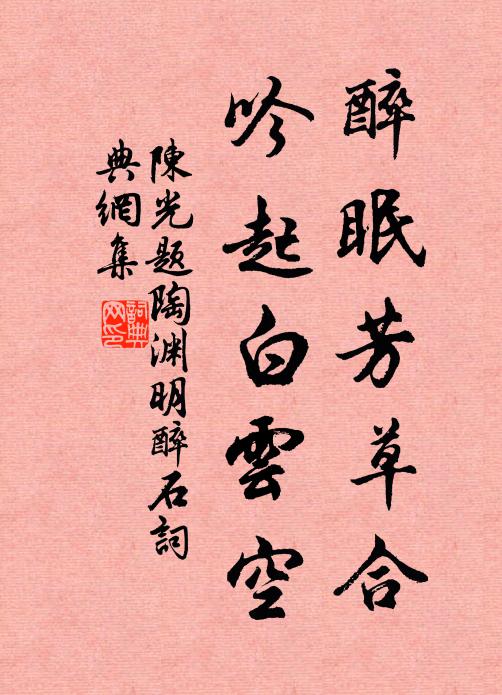 醉眠芳草合
吟起白雲空
陳光題陶淵明醉石詞
典網集
詞典
网印